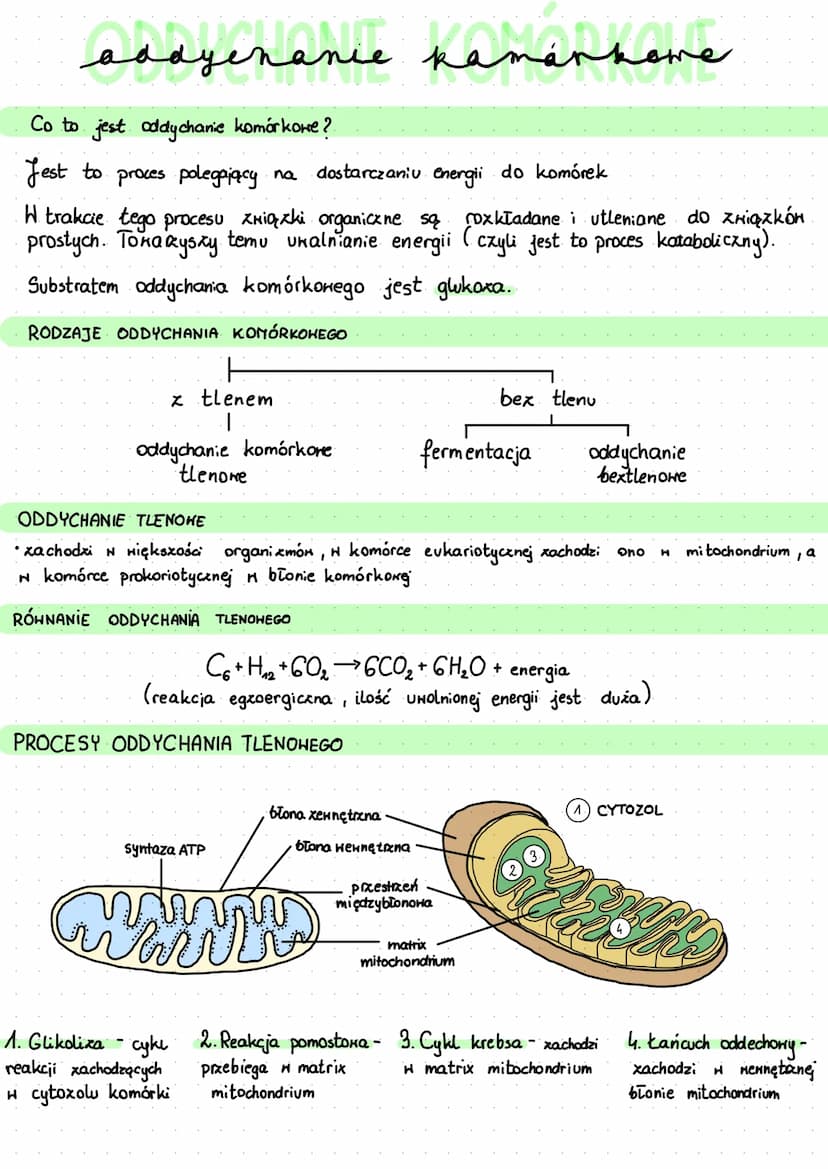 ODDYCHANIE KOMÓRKOWE
oddychanie komórkowe
Co to jest oddychanie komórkowe?
Jest to proces polegający na dostarczaniu energii do komórek
W trakcie tego procesu związki organiczne są rozkładane i utleniane do związków
prostych. Towarzyszy temu uwalnianie energii (czyli jest to proces kataboliczny).
Substratem oddychania komórkowego jest glukoza.
RODZAJE ODDYCHANIA KOMÓRKOWEGO
z tlenem bez tlenu
oddychanie komórkowe fermentacja oddychanie
tlenowe beztlenowe
ODDYCHANIE TLENOWE
• zachodzi w większości organizmów, w komórce eukariotycznej zachodzi ono w mitochondrium, a
w komórce prokoriotycznej w błonie komórkowej
RÓWNANIE ODDYCHANIA TLENOWEGO
C₆+H₁₂+6O₂→6CO₂+6H₂O + energia
(reakcja egzoergiczna, ilość uwolnionej energii jest duża)
PROCESY ODDYCHANIA TLENOWEGO
błona zewnętrzna
1 CYTOZOL
syntaza ATP
błona wewnętrzna
2 3
przestrzeń
międzybłonowa
4
matrix
mitochondrium
1. Glikoliza - cykl
reakcji zachodzących
w cytozolu komórki
2. Reakcja pomostowa -
przebiega w matrix
mitochondrium
3. Cykl krebsa - zachodzi
w matrix mitochondrium
4. Łańcuch oddechowy -
zachodzi w wewnętrznej
błonie mitochondrium